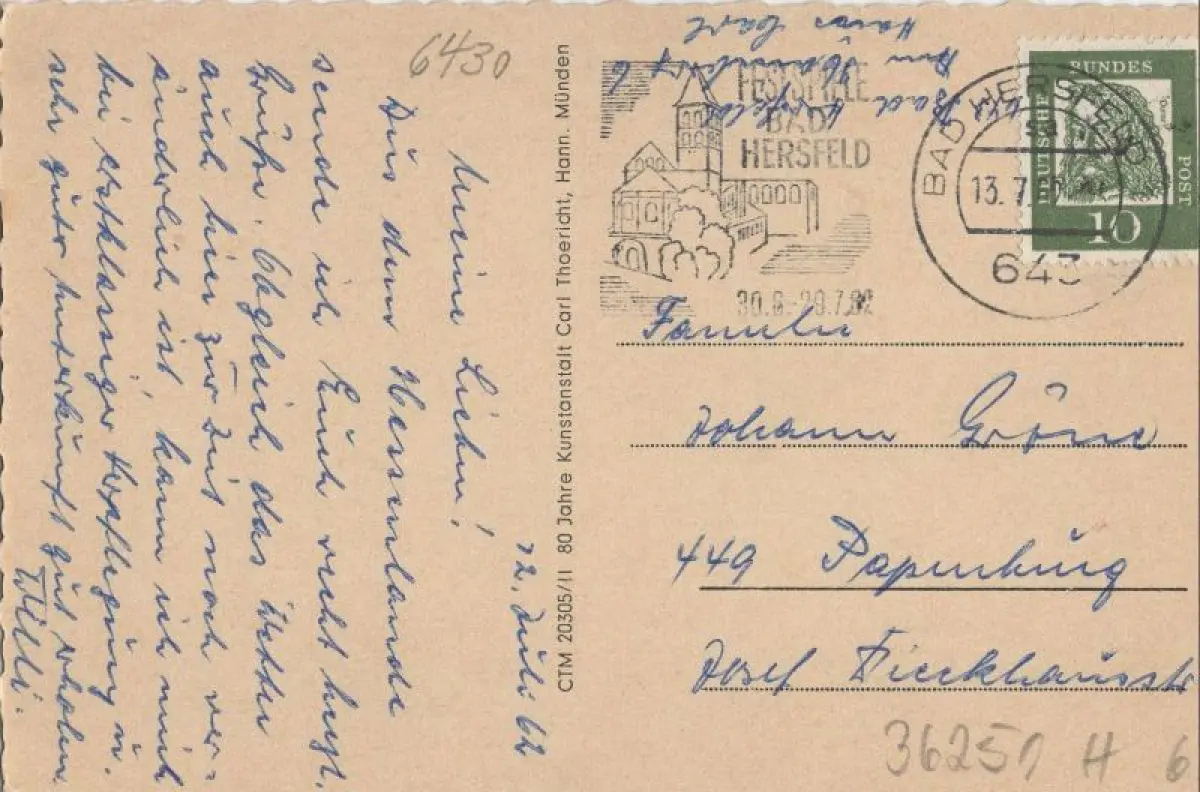 6430
12. Juli 62
Meine Lieben!
Aus dem Hessenlande
sende ich Euch recht herzl.
Grüße. Obgleich das Wetter
auch hier zur Zeit noch ver-
änderlich ist, kann ich mich
bei erstklassiger Verpflegung u.
sehr guter Unterkunft gut erholen.
Willi.
CTM 20305/II 80 Jahre Kunstanstalt Carl Thoericht, Hann. Münden
Bad Hersfeld
Am 6
Haus
FESTSPIELE
BAD
HERSFELD
30.6.-29.7.62
BAD HERSFELD
13.7.
643
DEUTSCHE
BUNDES
POST
10
Familie
Johann Gröne
449 Papenburg
Josef Fieckhausstr
36251 H 6